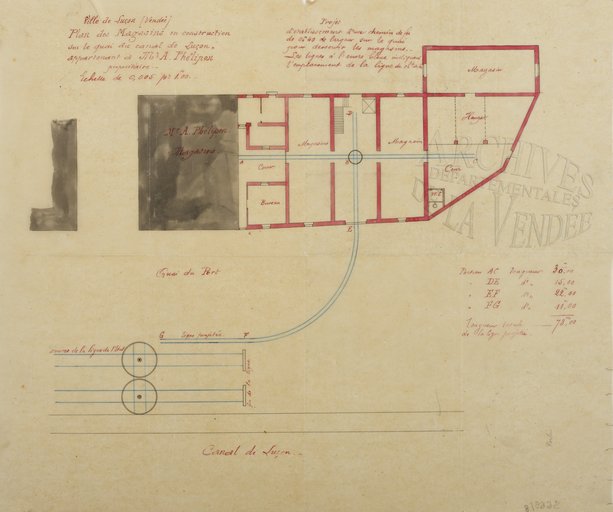 Ville de Luçon (Vendée)
Plan des Magasins en construction
sur le quai du canal de Luçon,
appartenant à Mr A. Phelipon
propriétaire
Echelle de 0,005 pr 1.00
Projet
d'établissement d'un chemin de fer
de de largeur sur le quai
pour desservir les magasins.
Les lignes à l'encre bleue indiquent
l'emplacement de la ligne
Magasin
Hangar
Mr A. Phelipon
Magasins
Magasins
Magasin
Cour
Cour
Bureau
D
A
B
E
ARCHIVES
DÉPARTEMENTALES
DE LA VENDÉE
Quai du Port
Portion AC longueur 30,00
DE do 15,00
EF do 22,00
FG do 11,00
Longueur totale 78,00
de la ligne projetée
G ligne projetée F
de la ligne
fin de la ligne
Canal de Luçon